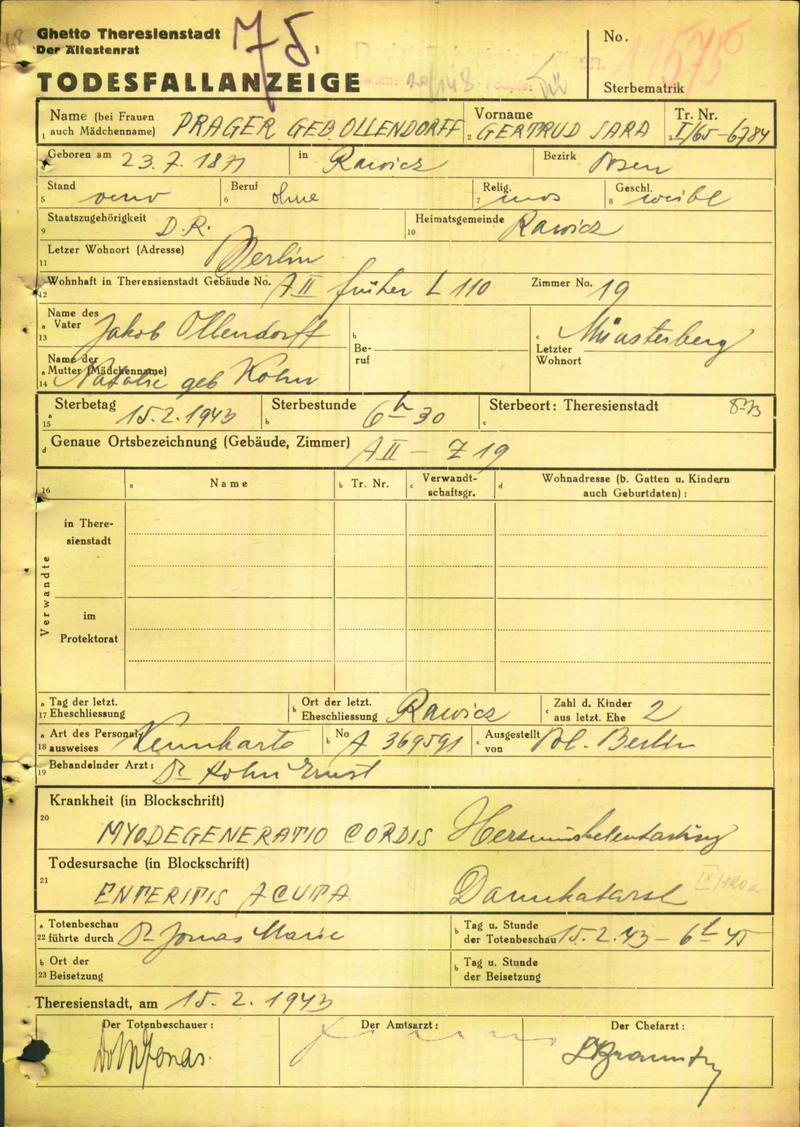 Ghetto Theresienstadt
Der Ältestenrat
75.
No.
TODESFALLANZEIGE
Sterbematrik
Name (bei Frauen auch Mädchenname) PRAGER GEB. OLLENDORFF Vorname GERTRUD SARA Tr. Nr. I/65-6784
1 2 3
Geboren am 23.7.1871 in Rawicz Bezirk Posen
Stand verw Beruf ohne Relig. mos Geschl. weibl
5 6 7 8
Staatszugehörigkeit D.R. Heimatsgemeinde Rawicz
9 10
Letzer Wohnort (Adresse) Berlin
11
Wohnhaft in Theresienstadt Gebäude No. A II früher L 110 Zimmer No. 19
12
Name des Vater Jakob Ollendorff
a 13
b Beruf
c Letzter Wohnort Münsterberg
Name der Mutter (Mädchenname) Natalie geb Kohn
a 14
Sterbetag 15.2.1943 Sterbestunde 6h 30 Sterbeort: Theresienstadt
a 15 b c
d Genaue Ortsbezeichnung (Gebäude, Zimmer) A II - Z 19
16 a Name b Tr. Nr. c Verwandtschaftsgr. d Wohnadresse (b. Gatten u. Kindern auch Geburtdaten) :
Verwandte
in Theresienstadt
im Protektorat
a 17 Tag der letzt. Eheschliessung b Ort der letzt. Eheschliessung Rawicz c Zahl d. Kinder aus letzt. Ehe 2
a 18 Art des Personalausweises Kennkarte b No A 369591 c Ausgestellt von Pol. Berlin
19 Behandelnder Arzt: Dr Kohn Ernst
Krankheit (in Blockschrift)
20
MYODEGENERATIO CORDIS Herzmuskelentartung
Todesursache (in Blockschrift)
21
ENTERITIS ACUTA Darmkatarrh
a 22 Totenbeschau führte durch Dr Jonas Marie b Tag u. Stunde der Totenbeschau 15.2.43 - 6h 45
b 23 Ort der Beisetzung b Tag u. Stunde der Beisetzung
Theresienstadt, am 15. 2. 1943
Der Totenbeschauer : Der Amtsarzt : Der Chefarzt :